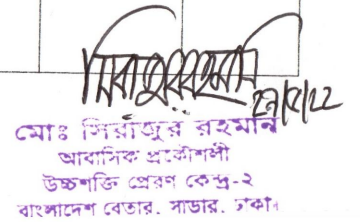 সিরাজুর রহমান
২৭/৫/২২
মোঃ সিরাজুর রহমান
আবাসিক প্রকৌশলী
উচ্চশক্তি প্রেরণ কেন্দ্র-২
বাংলাদেশ বেতার, সাভার, ঢাকা।